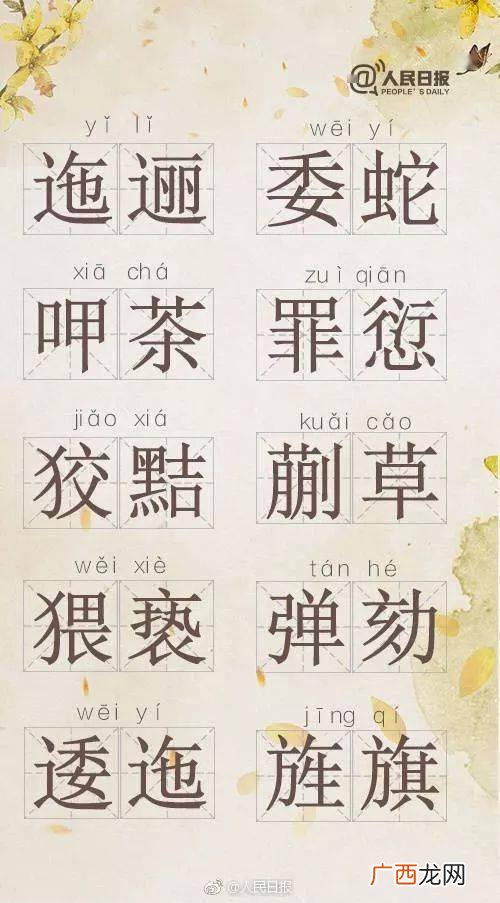 @人民日报
PEOPLE'S DAILY
yǐ lǐ wēi yí
迤逦 委蛇
xiā chá zuì qiān
呷茶 罪愆
jiǎo xiá kuǎi cǎo
狡黠 蒯草
wěi xiè tán hé
猥亵 弹劾
wēi yí jīng qí
逶迤 旌旗
@人民日报
广西龙网